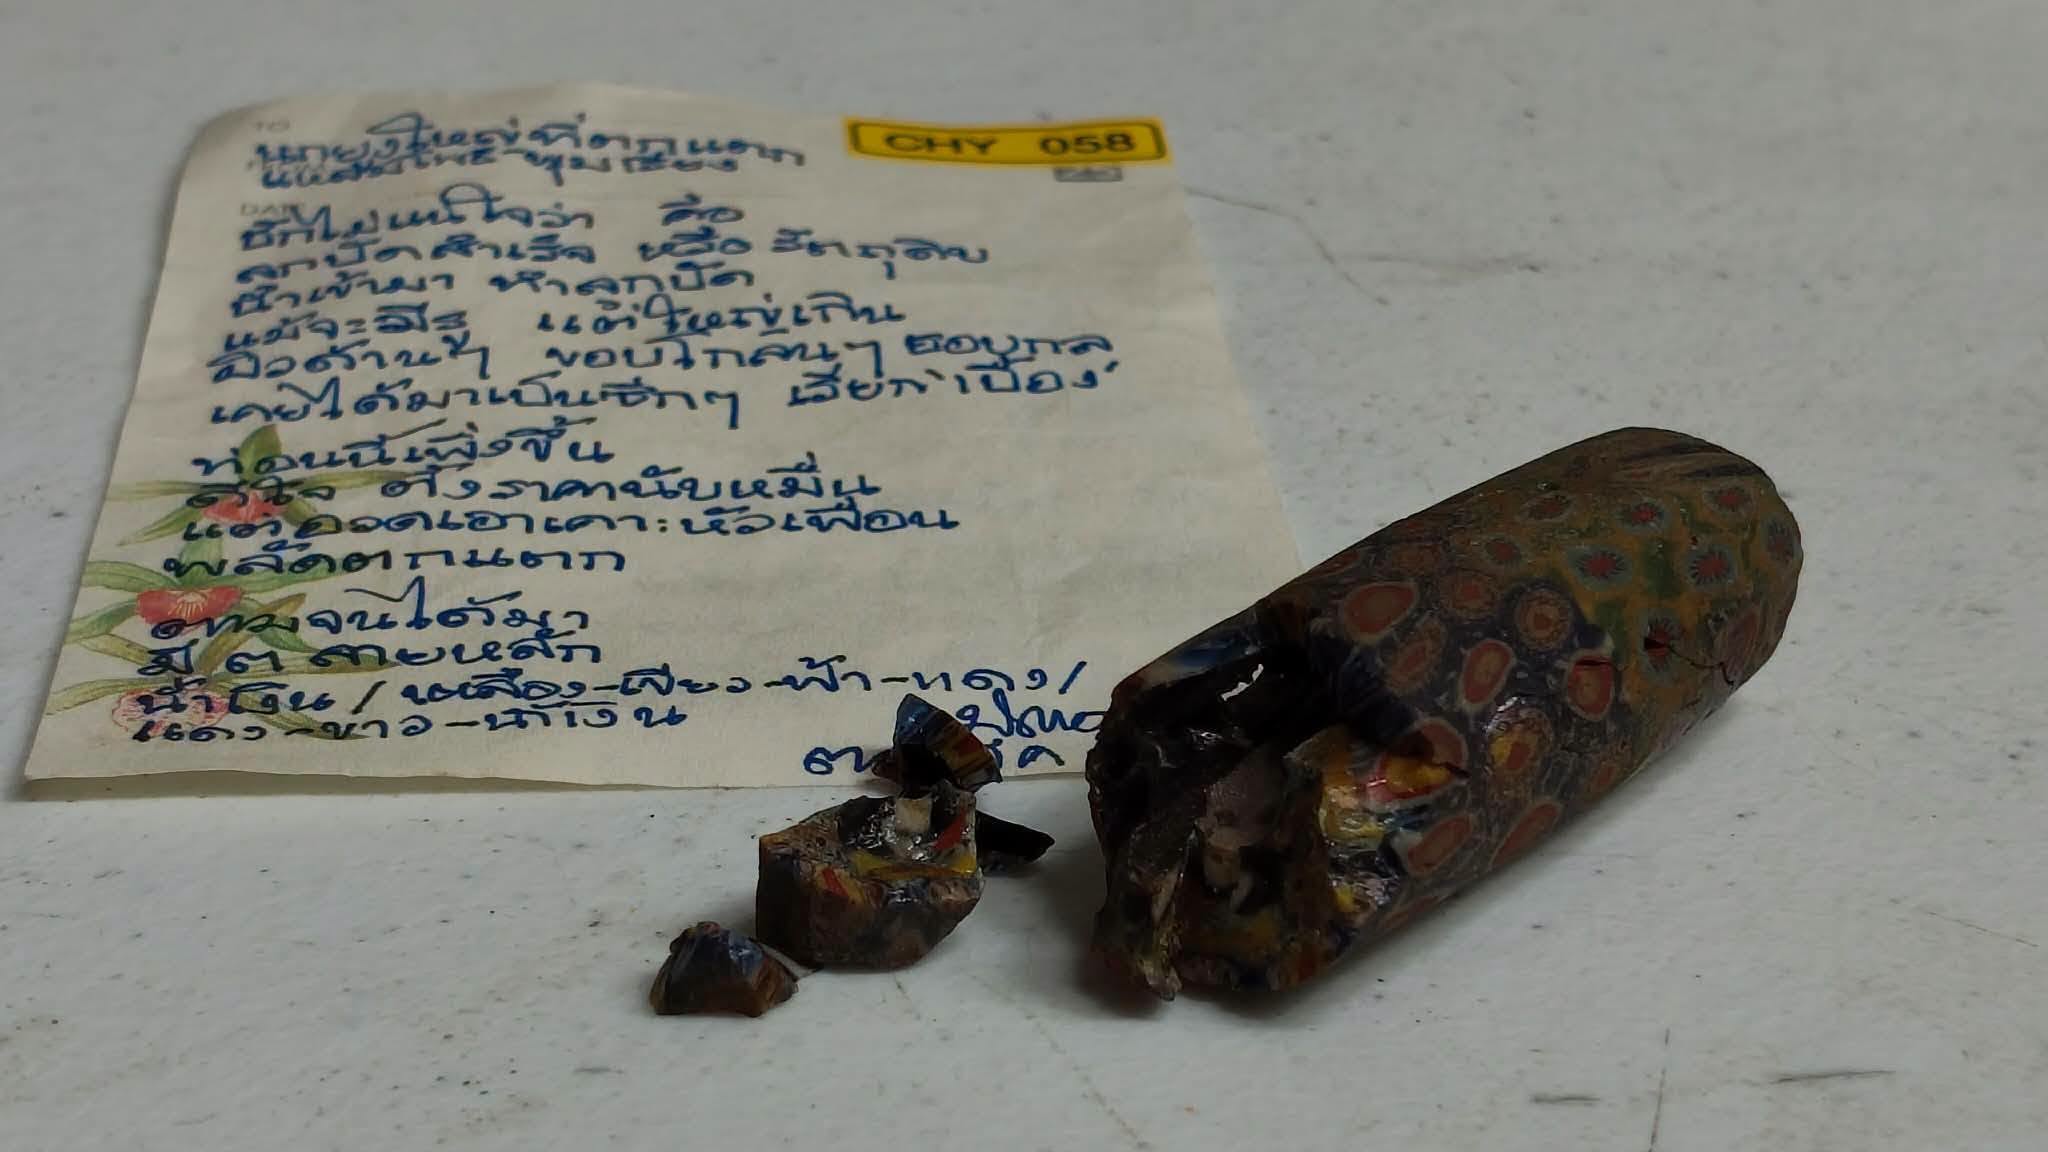 TO
CHY 058
นกยูงใหญ่ที่ตกแตก
แหลมโพธิ์ พุมเรียง
DATE
ยังไม่แน่ใจว่า คือ
ลูกปัดสำเร็จ หรือ วัตถุดิบ
นำเข้ามา ทำลูกปัด
แม้จะมีรู แต่ใหญ่เกิน
ผิวด้านๆ ขอบ ๆ
เคยได้มาเป็นซีกๆ เรียก "เบื้อง"
ท่อนนี้เพิ่งขึ้น
ดีใจ ตั้งราคานับหมื่น
แต่อวดเอาเคาะหัวเพื่อน
พลัดตกแตก
ตามจนได้มา
มี ๓ ลายหลัก
น้ำเงิน / เหลือง-เขียว-ฟ้า-แดง /
แดง-ขาว-น้ำเงิน